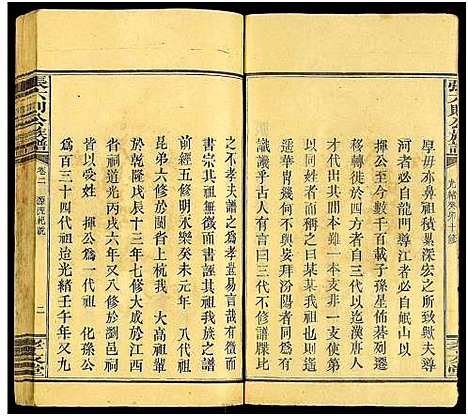 張六則公族譜
光緒癸卯十修
厚毋亦鼻祖積纍深宏之所致與夫導
河者必自龍門導江者必溯岷山以
揮公至今數千百載子孫星佈碁列遷
移轉徙於四方者自三代以迄漢唐人
才代出其間本難一本支非一支使第
鋪敘之曰某為我祖某為我祖亦安見
遥遥華胄幾何不與妄拜汾陽者同為有
識譏乎古人有言曰三代不修譜牒比
之不孝夫譜之為孝豈易言哉有徵而
書宗其祖無徵而書誣其祖我族之譜
前經五修明永樂癸未元年　八代祖
昆弟六修於閩省上杭我　太高輩
於乾隆戊辰十三年七修大成於江西
省祠道光丙戌六年又八修於瀏邑祠
皆以受姓　揮公為一代祖　化孫公
為百三十四代祖迨光緒壬午年又九
張六則公族譜
卷二
源流總說
二
孝友堂